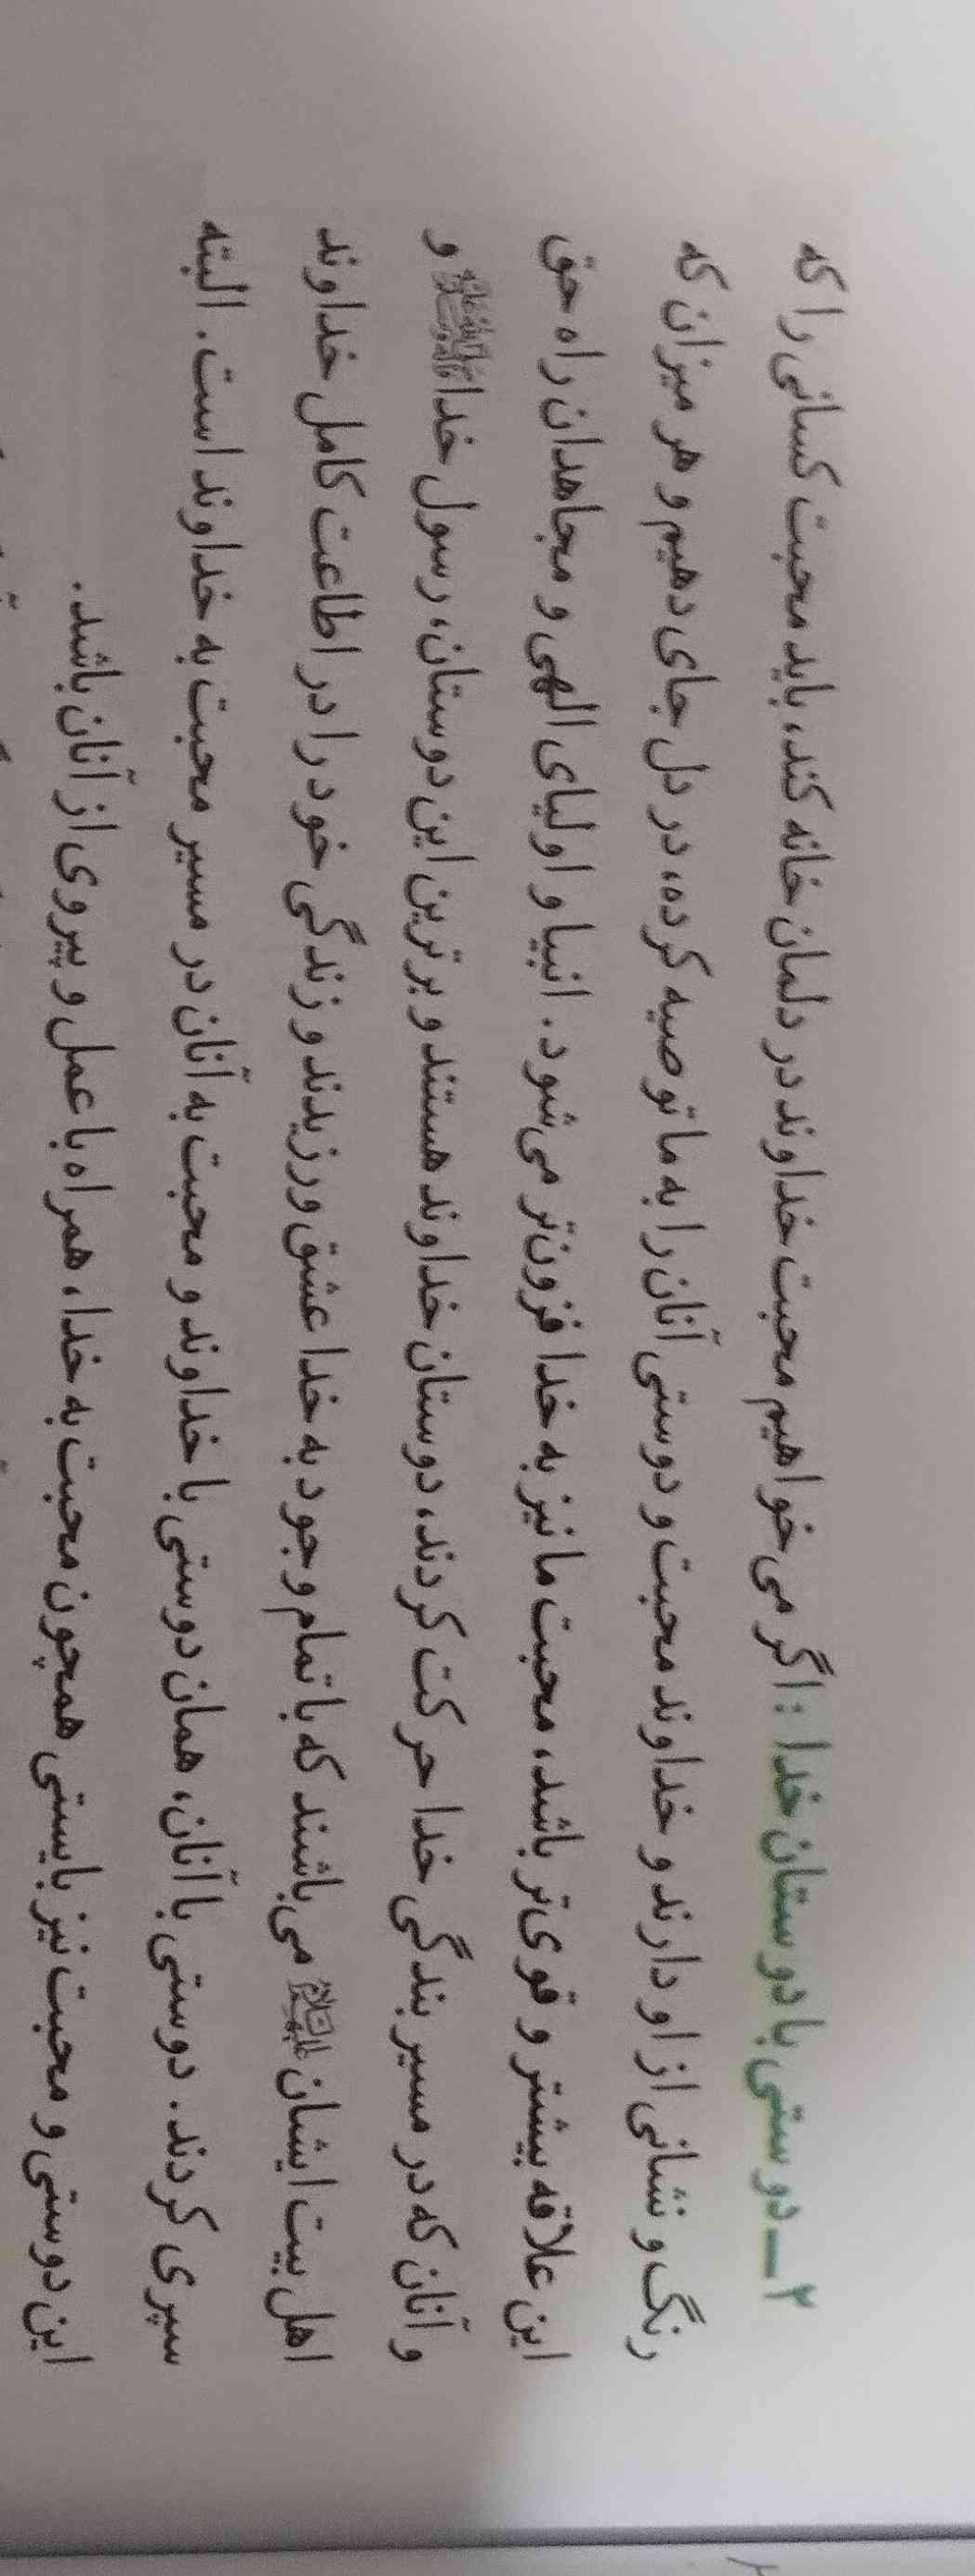 ۲ــ دوستی با دوستان خدا : اگر می‌خواهیم محبت خداوند در دلمان خانه کند، باید محبت کسانی را که
رنگ و نشانی از او دارند و خداوند محبت و دوستی آنان را به ما توصیه کرده، در دل جای دهیم و هر میزان که
این علاقه بیشتر و قوی‌تر باشد، محبت ما نیز به خدا فزون‌تر می‌شود. انبیا و اولیای الهی و مجاهدان راه حق
و آنان که در مسیر بندگی خدا حرکت کردند، دوستان خداوند هستند و برترین این دوستان، رسول خدا ﷺ و
اهل بیت ایشان علیهم‌السلام می‌باشند که با تمام وجود به خدا عشق ورزیدند و زندگی خود را در اطاعت کامل خداوند
سپری کردند. دوستی با آنان، همان دوستی با خداوند و محبت به آنان در مسیر محبت به خداوند است. البته
این دوستی و محبت نیز بایستی همچون محبت به خدا، همراه با عمل و پیروی از آنان باشد.